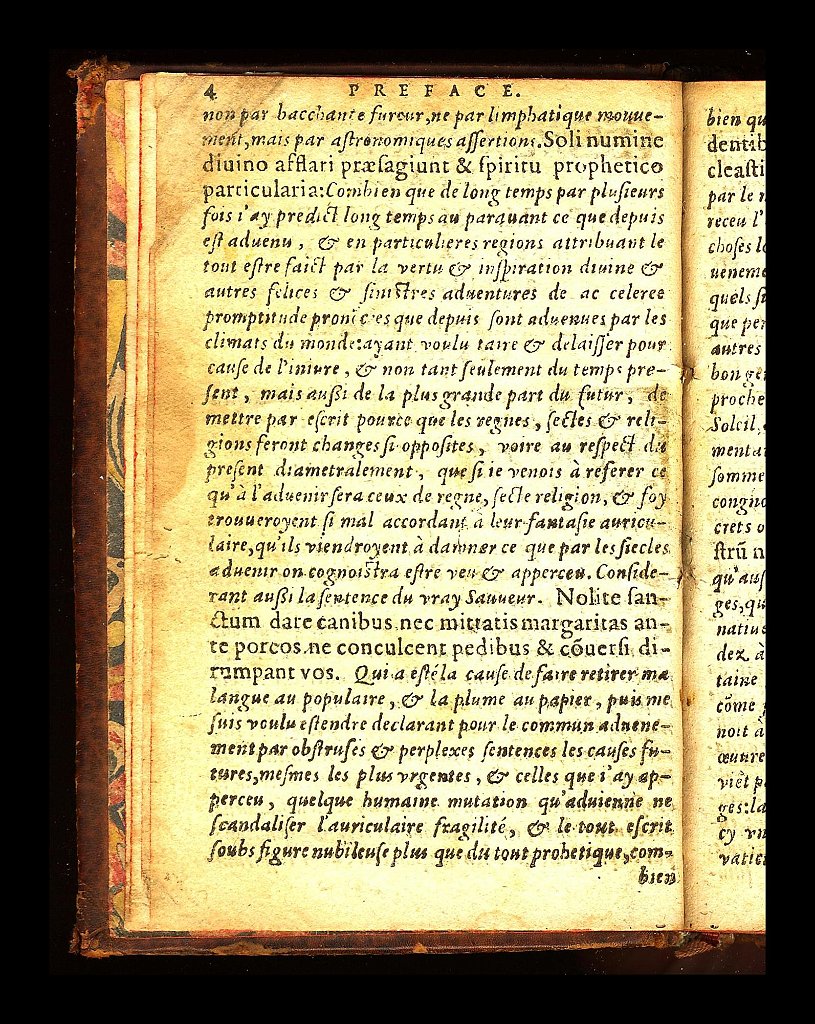 4 PREFACE.
non par bacchante fureur, ne par limphatique mouue-
ment, mais par astronomiques assertions. Soli numine
diuino afflari præsagiunt & spiritu prophetico
particularia: Combien que de long temps par plusieurs
fois i'ay predict long temps au parauant ce que depuis
est aduenu, & en particulieres regions attribuant le
tout estre faict par la vertu & inspiration diuine &
autres felices & sinistres aduentures de ac celeree
promptitude prononcees que depuis sont aduenues par les
climats du monde: ayant voulu taire & delaisser pour
cause de l'iniure, & non tant seulement du temps pre-
sent, mais aussi de la plus grande part du futur, de
mettre par escrit pource que les regnes, sectes & reli-
gions feront changes si opposites, voire au respect du
present diametralement, que si ie venois à referer ce
qu'à l'aduenir sera ceux de regne, secte religion, & foy
trouueroyent si mal accordant à leur fantasie auricu-
laire, qu'ils viendroyent à damner ce que par les siecles
aduenir on cognoistra estre veu & apperceu. Conside-
rant aussi la sentence du vray Sauueur. Nolite san-
ctum dare canibus nec mittatis margaritas an-
te porcos ne conculcent pedibus & cõuersi di-
rumpant vos. Qui a esté la cause de faire retirer ma
langue au populaire, & la plume au papier, puis me
suis voulu estendre declarant pour le commun aduene-
ment par obstruses & perplexes sentences les causes fu-
tures, mesmes les plus vrgentes, & celles que i'ay ap-
perceu, quelque humaine mutation qu'aduienne ne
scandaliser l'auriculaire fragilité, & le tout escrit
soubs figure nubileuse plus que du tout prohetique, com-
bien
bien qu
dentib
cleasti
par le
receu l'
choses
ueneme
quels
que
autres
bon
proche
Soleil
menta
somme
congno
crets
strũ
qu'aus
ges, qu
natiu
dez à
taine
cõme
noit à
œuure
viêt
ges: la
cy
vatic